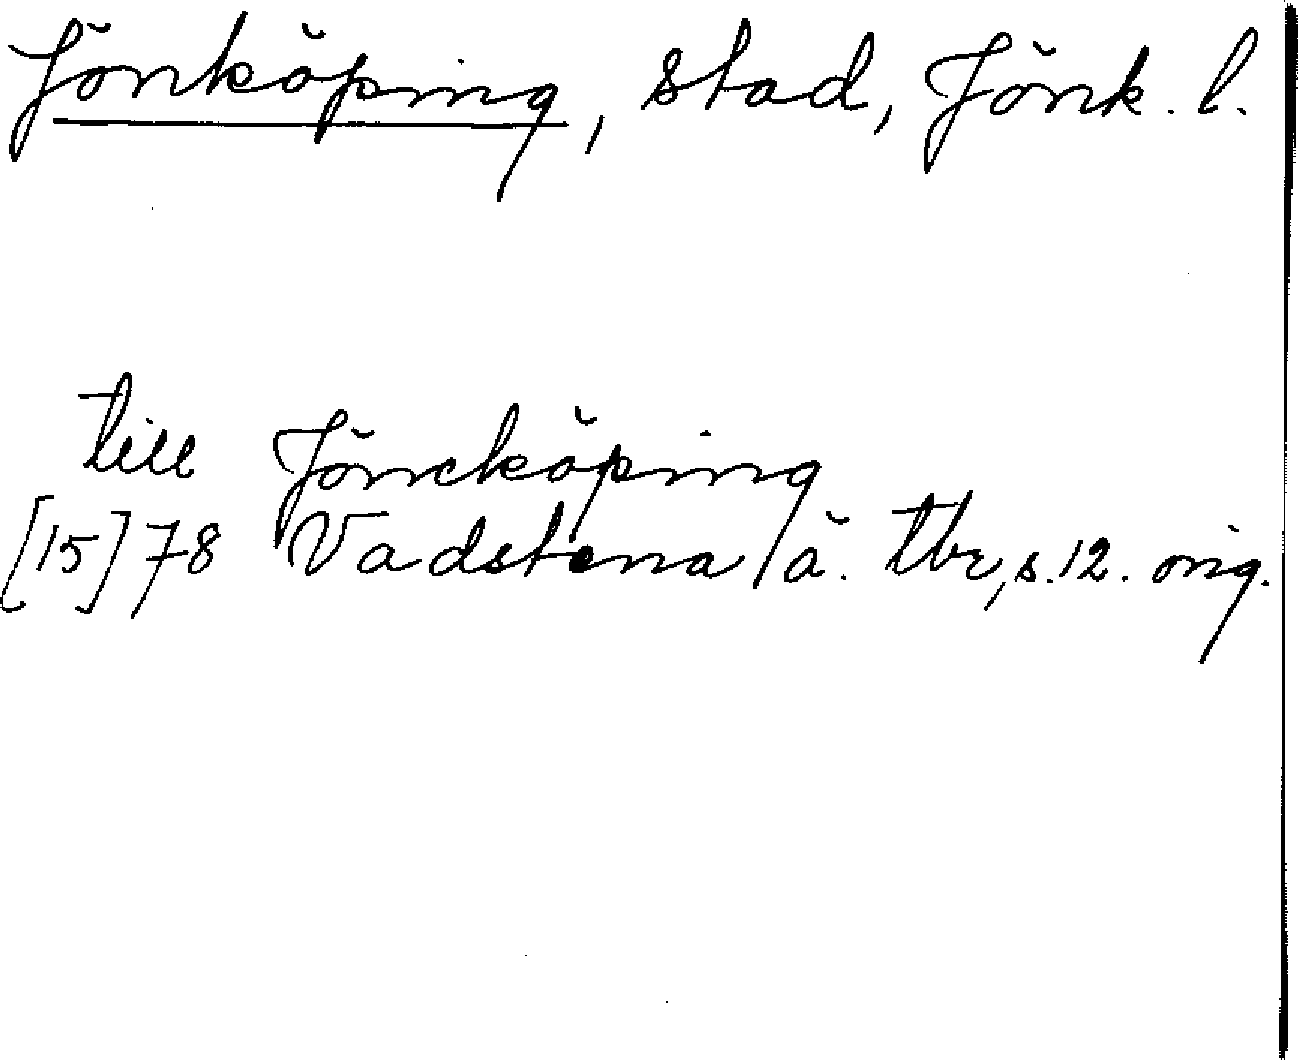 Jönköping, stad, Jönk. l.
till Jöncköping
[15]78 Vadstena ä. tbr, s. 12. orig.